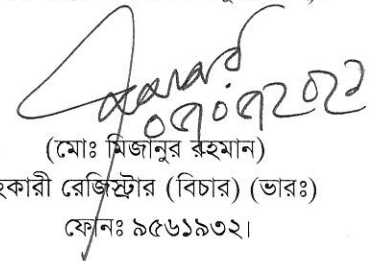 ০৭.০৭.২০২২
(মোঃ মিজানুর রহমান)
সহকারী রেজিস্ট্রার (বিচার) (ভারঃ)
ফোনঃ ৯৫৬১৯৩২।